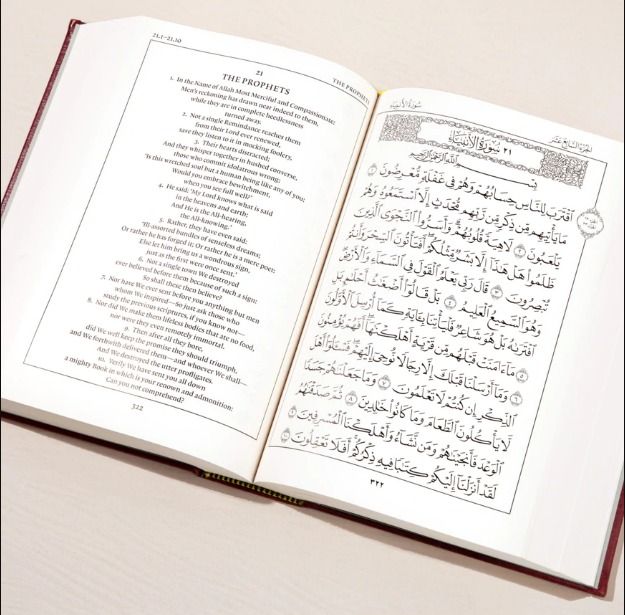 21.1–21.10
THE PROPHETS
21
THE PROPHETS
1. In the Name of Allah Most Merciful and Compassionate:
Men's reckoning has drawn near indeed to them,
while they are in complete heedlessness
turned away.
2. Not a single Remindance reaches them
from their Lord ever renewed,
save they listen to it in mocking foolery,
3. Their hearts distracted;
And they whisper together in hushed converse,
those who commit idolatrous wrong:
'Is this wretched soul but a human being like any of you;
Would you embrace bewitchment,
when you see full well?'
4. He said, 'My Lord knows what is said
in the heavens and earth;
And He is the All-hearing,
the All-knowing.'
5. Rather, they have even said:
'Ill-assorted bundles of senseless dreams;
Or rather he has forged it; Or rather he is a mere poet;
Else let him bring us a wondrous sign,
just as the first were once sent.'
6. Not a single town We destroyed
ever believed before them because of such a sign:
So shall these then believe?
7. Nor have We ever sent before you anything but men
whom We inspired—So just ask those who
study the previous scriptures, if you know not—
8. Nor did We make them lifeless bodies that ate no food,
nor were they even remotely immortal,
9. Then after all they bore,
did We well keep the promise they should triumph,
and We forthwith delivered them—and whoever We shall—
And We destroyed the utter profligates.
10. Verily We have sent you all down
a mighty Book in which is your renown and admonition:
Can you not comprehend?
322
سُورَةُ الأَنبِيَاءِ
الجزء السابع عشر
٢١ سُورَةُ الأَنبِيَاءِ
بِسْمِ اللَّهِ الرَّحْمَٰنِ الرَّحِيمِ
ٱقْتَرَبَ لِلنَّاسِ حِسَابُهُمْ وَهُمْ فِي غَفْلَةٍ مُّعْرِضُونَ ١
مَا يَأْتِيهِم مِّن ذِكْرٍ مِّن رَّبِّهِم مُّحْدَثٍ إِلَّا ٱسْتَمَعُوهُ وَهُمْ
يَلْعَبُونَ ٢ لَاهِيَةً قُلُوبُهُمْ وَأَسَرُّوا۟ ٱلنَّجْوَى ٱلَّذِينَ
ظَلَمُوا۟ هَلْ هَٰذَآ إِلَّا بَشَرٌ مِّثْلُكُمْ أَفَتَأْتُونَ ٱلسِّحْرَ وَأَنتُمْ
تُبْصِرُونَ ٣ قَالَ رَبِّي يَعْلَمُ ٱلْقَوْلَ فِي ٱلسَّمَآءِ وَٱلْأَرْضِ
وَهُوَ ٱلسَّمِيعُ ٱلْعَلِيمُ ٤ بَلْ قَالُوٓا۟ أَضْغَٰثُ أَحْلَٰمٍ بَلِ
ٱفْتَرَىٰهُ بَلْ هُوَ شَاعِرٌ فَلْيَأْتِنَا بِـَٔايَةٍ كَمَآ أُرْسِلَ ٱلْأَوَّلُونَ
٥ مَآ ءَامَنَتْ قَبْلَهُم مِّن قَرْيَةٍ أَهْلَكْنَٰهَآ أَفَهُمْ يُؤْمِنُونَ
٦ وَمَآ أَرْسَلْنَا قَبْلَكَ إِلَّا رِجَالًا نُّوحِيٓ إِلَيْهِمْ فَسْـَٔلُوٓا۟ أَهْلَ
ٱلذِّكْرِ إِن كُنتُمْ لَا تَعْلَمُونَ ٧ وَمَا جَعَلْنَٰهُمْ جَسَدًا
لَّا يَأْكُلُونَ ٱلطَّعَامَ وَمَا كَانُوا۟ خَٰلِدِينَ ٨ ثُمَّ صَدَقْنَٰهُمُ
ٱلْوَعْدَ فَأَنجَيْنَٰهُمْ وَمَن نَّشَآءُ وَأَهْلَكْنَا ٱلْمُسْرِفِينَ ٩
لَقَدْ أَنزَلْنَآ إِلَيْكُمْ كِتَٰبًا فِيهِ ذِكْرُكُمْ أَفَلَا تَعْقِلُونَ ١٠
٣٢٢